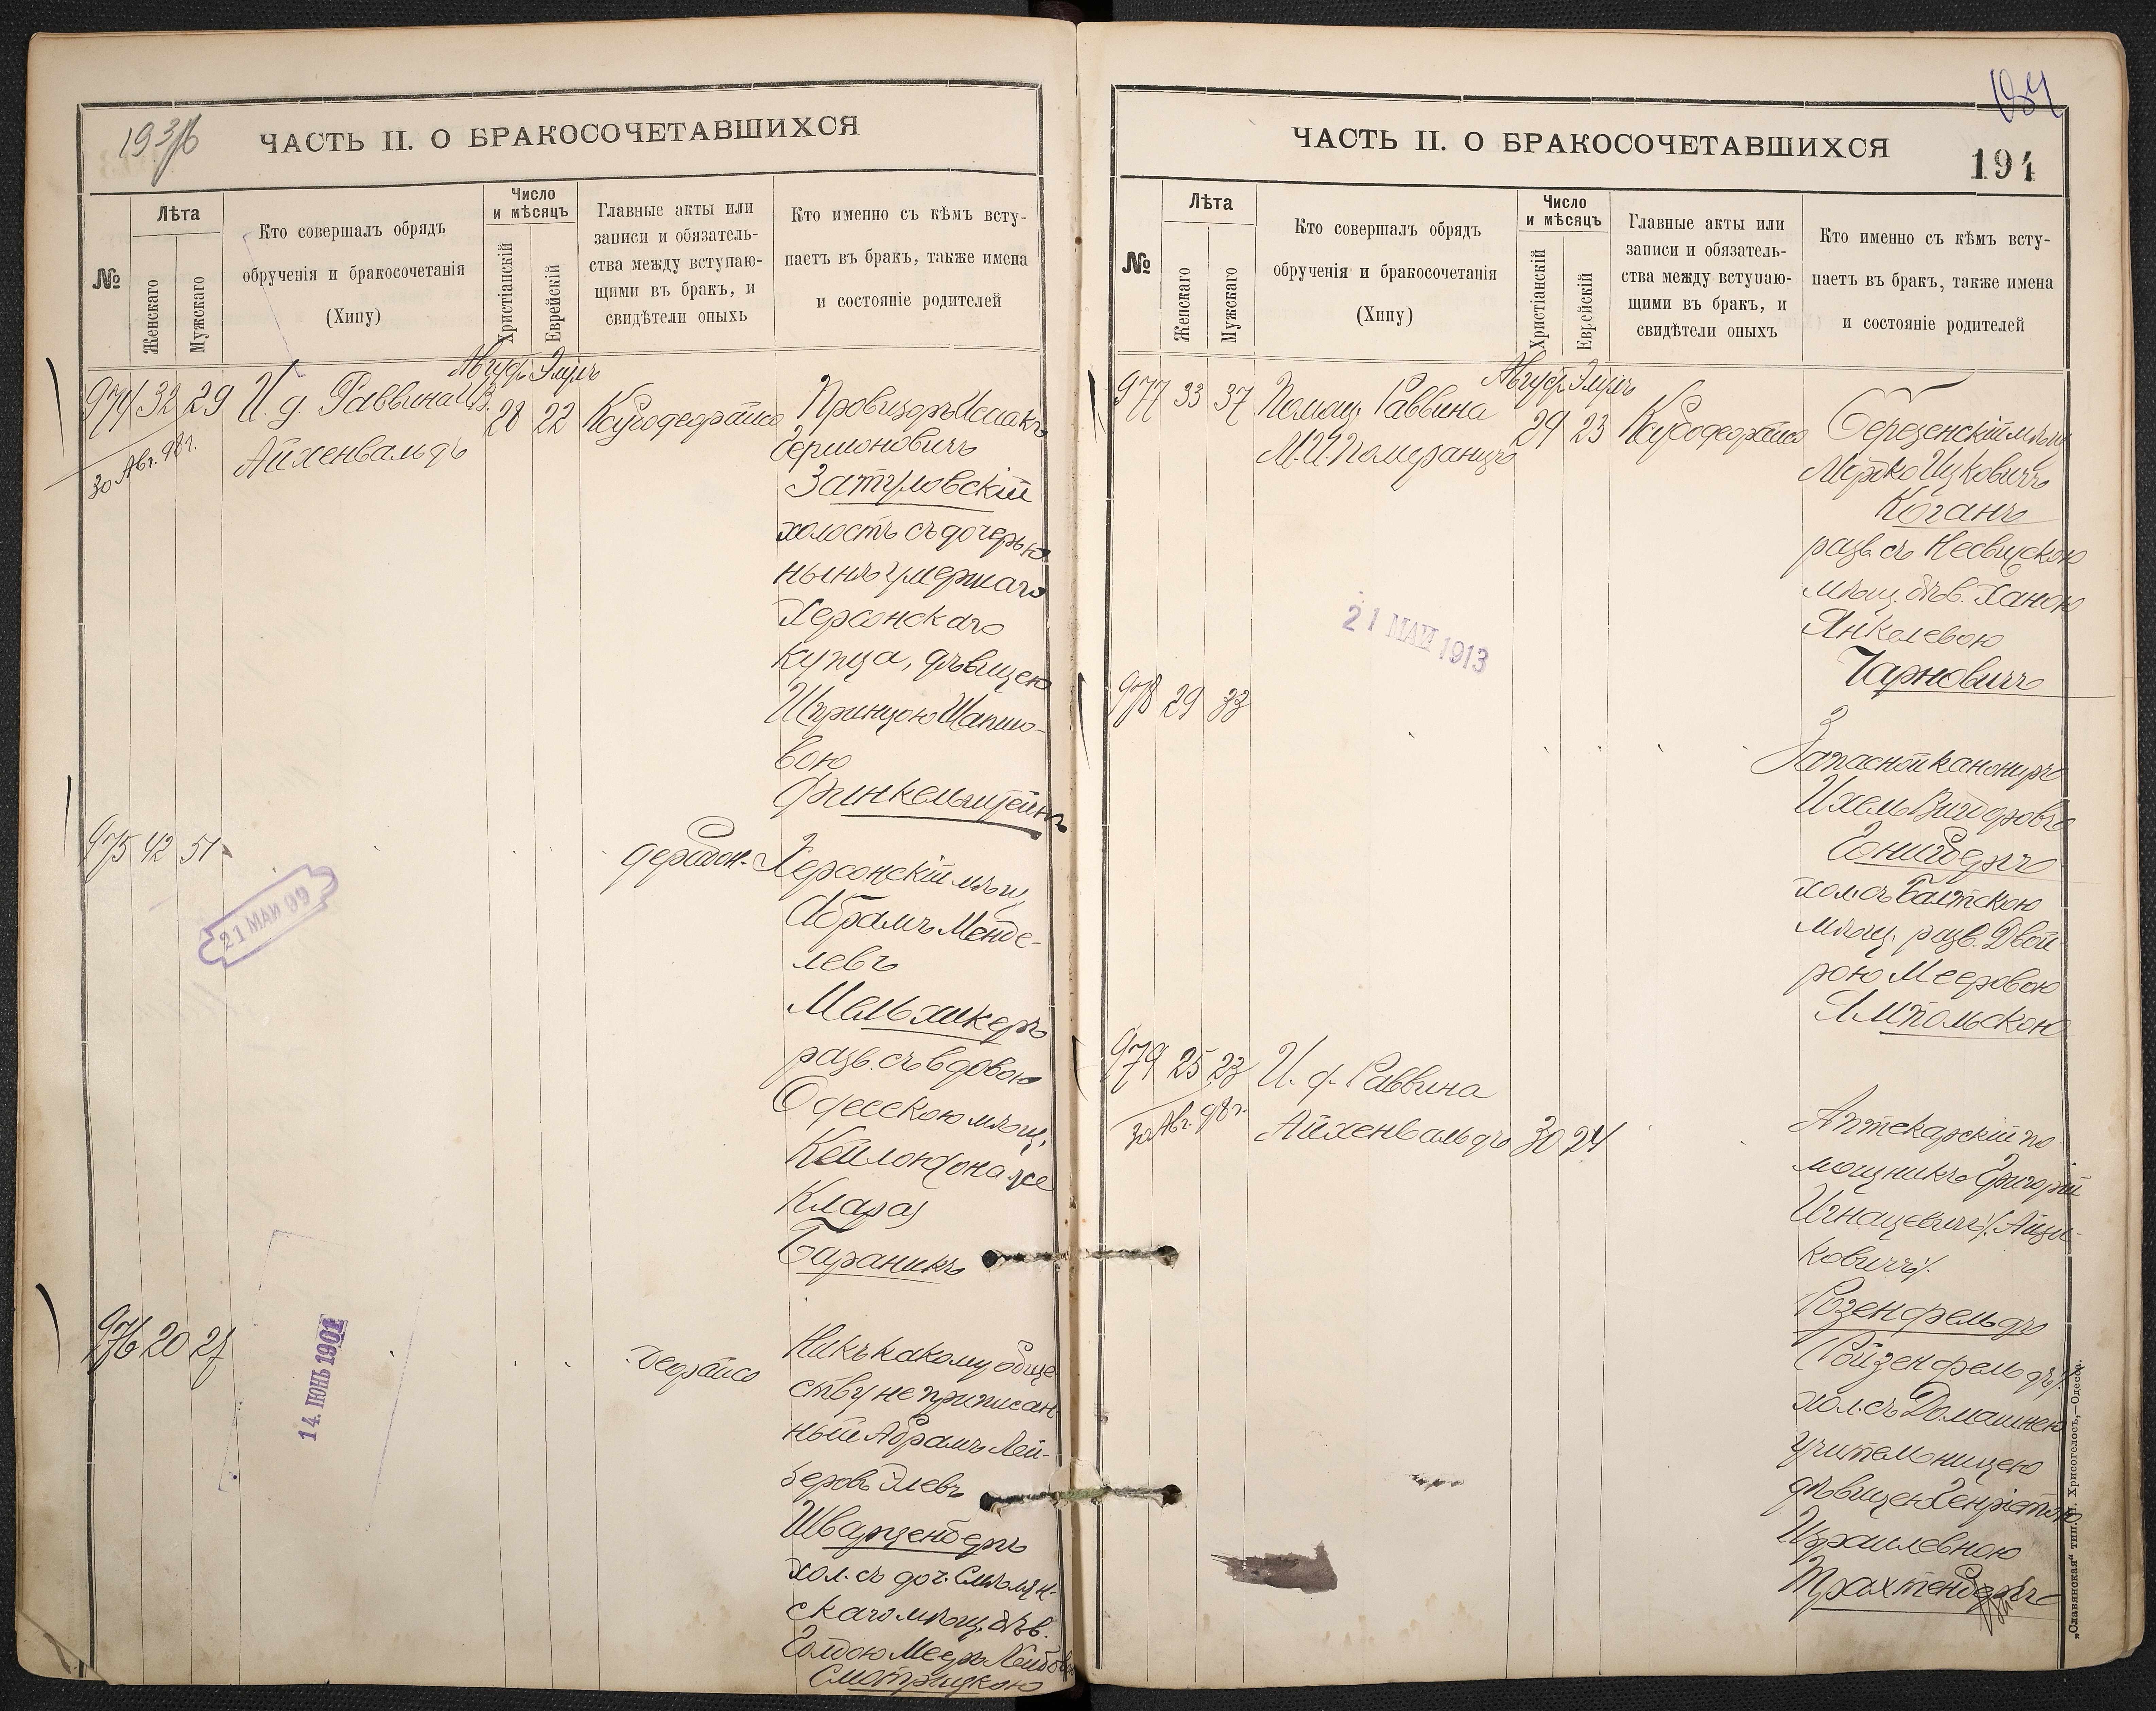 193/б
ЧАСТЬ II. О БРАКОСОЧЕТАВШИХСЯ
№
Лѣта
Женскаго
Мужскаго
Кто совершалъ обрядъ
обрученія и бракосочетанія
(Хипу)
Число
и мѣсяцъ
Христіанскій
Еврейскій
Главные акты или
записи и обязатель-
ства между вступаю-
щими въ бракъ, и
свидѣтели оныхъ
Кто именно съ кѣмъ всту-
паетъ въ бракъ, также имена
и состояніе родителей
Август. Элулъ
974 32 29 И. д. Раввина 28 22
Айхенвальдъ
30 Авг. 98 г.
Провизоръ Исаакъ
Гершоновичъ
Затуловскій
холостъ съ дочерью
нынѣ умершаго
Херсонскаго
купца, дѣвицею
Шпринцою Шапшо-
вою
Финкельштейнъ
975 42 51
Херсонскій мѣщ.
Абрамъ Менде-
левъ
Мельхикеръ
разв. съ вдовою
Одесскою мѣщ.
Кейлою (она же
Клара)
Бараникъ
21 МАЙ 99
976 20 27
14. ІЮНЬ 1901
Ни къ какому обще-
ству не приписан-
ный Абрамъ Лей-
беровъ Элевъ
Шварценбергъ
хол. съ доч. Смѣлян-
скаго мѣщ. дѣв.
Голдою Мееръ Лейбов.
Смотрицкою
184
ЧАСТЬ II. О БРАКОСОЧЕТАВШИХСЯ
194
№
Лѣта
Женскаго
Мужскаго
Кто совершалъ обрядъ
обрученія и бракосочетанія
(Хипу)
Число
и мѣсяцъ
Христіанскій
Еврейскій
Главные акты или
записи и обязатель-
ства между вступаю-
щими въ бракъ, и
свидѣтели оныхъ
Кто именно съ кѣмъ всту-
паетъ въ бракъ, также имена
и состояніе родителей
Август. Элулъ
977 33 37 Помощ. Раввина 29 23
М. И. Померанцъ
Березенскій мѣщ.
Мордко Ицковичъ
Коганъ
разв. съ Несвижскою
мѣщ. дѣв. Ханою
Янкелевою
Чарновичъ
21 МАЙ 1913
978 29 33
Запасной канониръ
Ихель Вигдоровъ
Гонигбергъ
хол. съ Балтскою
мѣщ. разв. Двой-
рою Мееровою
Ямпольскою
979 25 23 И. д. Раввина
Айхенвальдъ 30 24
30 Авг. 98 г.
Аптекарскій по-
мощникъ Григорій
Игнацевичъ (Айзи-
ковичъ)
Розенфельдъ
(Ройзенфельдъ)
хол. съ Домашнею
учительницею
дѣвицею Генріетою
Израилевною
Трахтенбергъ
„Славянская“ тип. Н. Хрисогелосъ,—Одесса.